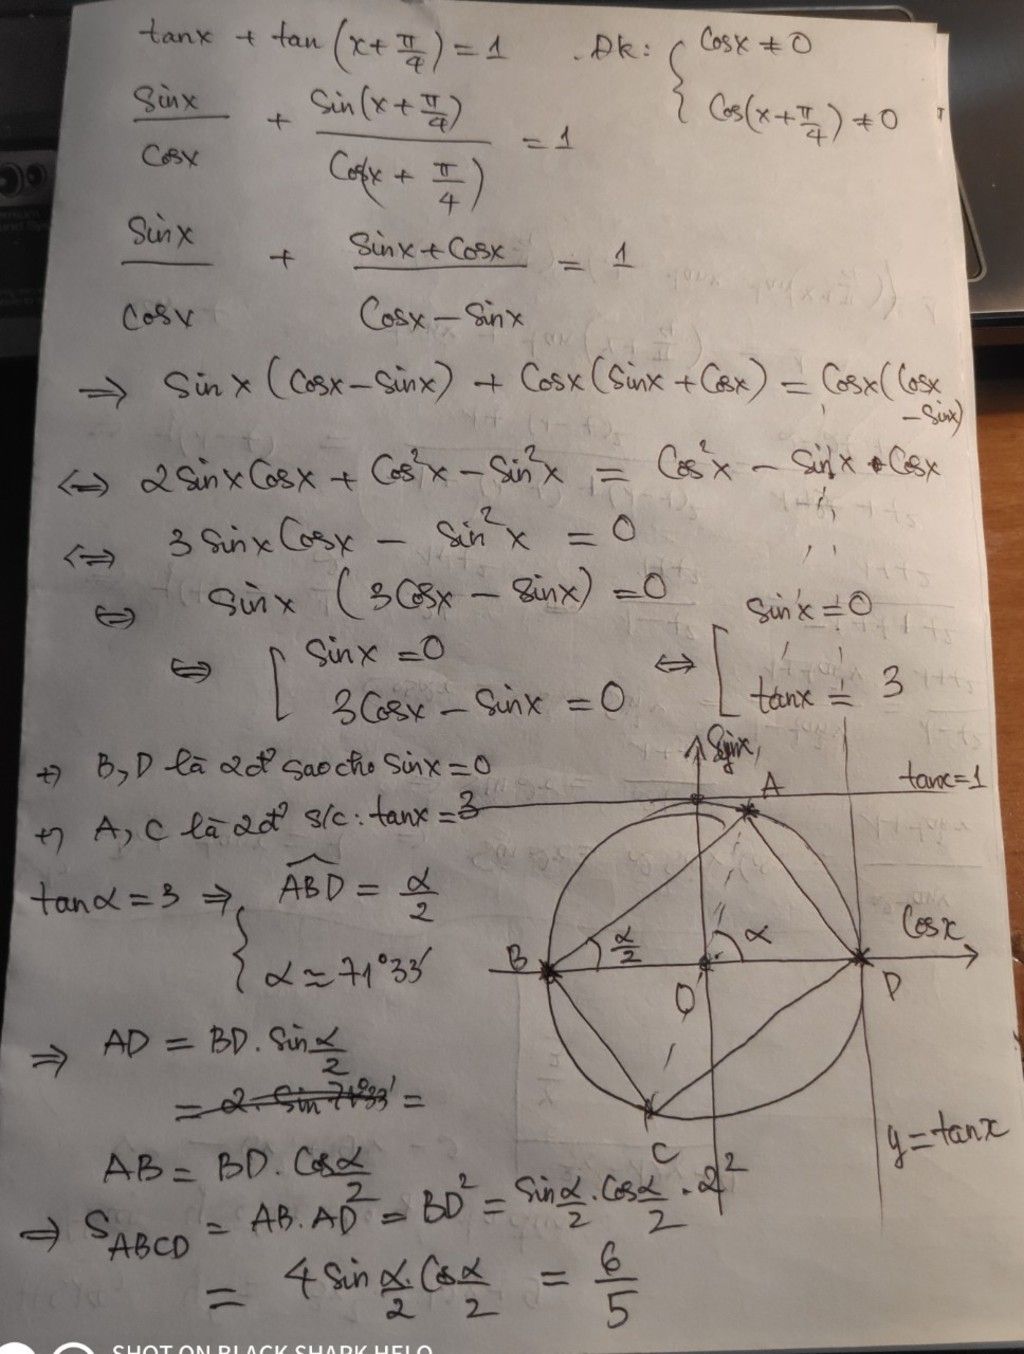 tanx + tan (x + π/4) = 1 . Đk: { Cosx ≠ 0
Cos(x + π/4) ≠ 0
Sinx/Cosx + Sin(x + π/4)/Cos(x + π/4) = 1
Sinx/Cosx + Sinx + Cosx/Cosx − Sinx = 1
⇒ Sinx (Cosx − Sinx) + Cosx (Sinx + Cosx) = Cosx (Cosx − Sinx)
⇔ 2 Sinx Cosx + Cos²x − Sin²x = Cos²x − Sinx • Cosx
⇔ 3 Sinx Cosx − Sin²x = 0
⇔ Sinx (3Cosx − Sinx) = 0
⇔ [ Sinx = 0
3Cosx − Sinx = 0
⇔ [ Sinx = 0
tanx = 3
+) B, D là 2đ' sao cho Sinx = 0
+) A, C là 2đ' s/c: tanx = 3
tanα = 3 ⇒ { ABD = α/2
α ≈ 71°33'
⇒ AD = BD. Sin α/2
= 2. Sin 71°33' =
AB = BD. Cos α/2
⇒ S ABCD = AB. AD = BD² = Sin α/2 . Cos α/2 . 2²
= 4 Sin α/2 . Cos α/2 = 6/5
Sinx
A
tanx = 1
Cosx
B
α/2
α
O
D
C
y = tanx
SHOT ON BLACK SHARK HELO